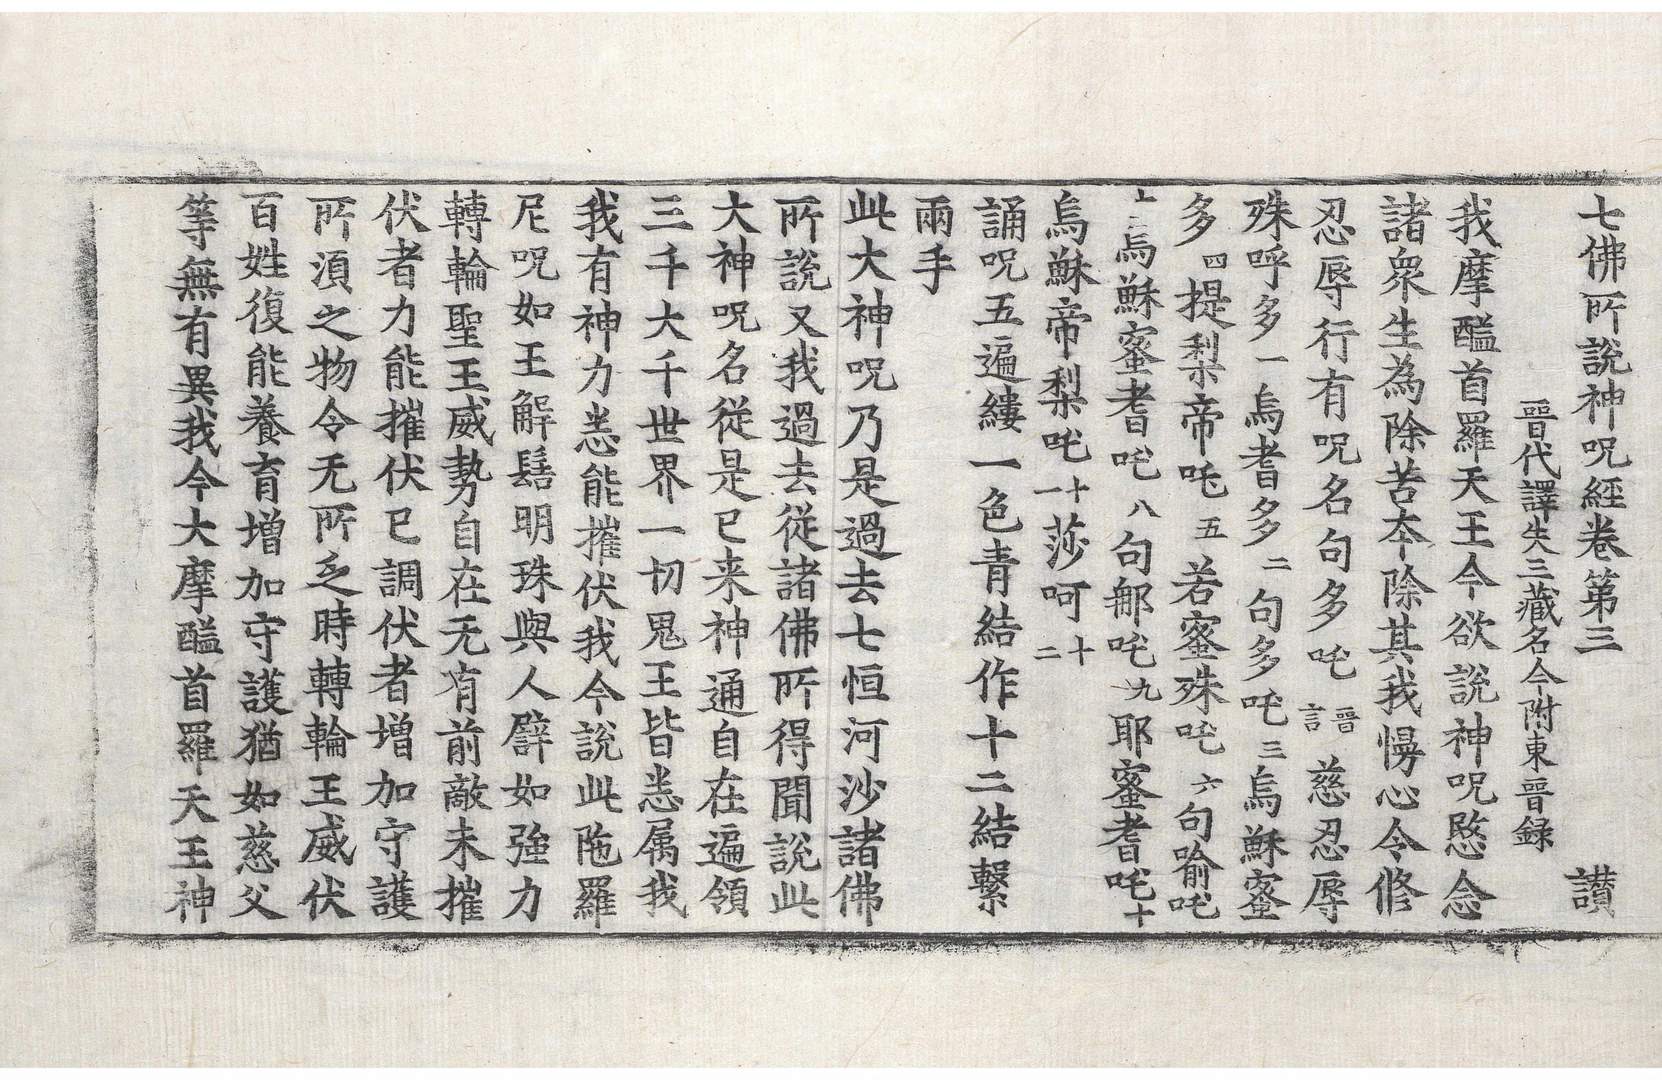 七佛所說神呪經卷第三 讃
晉代譯失三藏名今附東晉録
我摩醯首羅天王今欲說神呪愍念
諸衆生為除苦夲除其我慢心令修
忍辱行有呪名句多吒晉言慈忍辱
殊呼多一烏耆多二句多吒三烏穌蜜
多四提梨帝吒五若蜜殊吒六句喻吒
七烏穌蜜耆吒八句郍吒九耶蜜耆吒十
烏穌帝梨吒十一莎呵十二
誦呪五遍縷一色青結作十二結繫
兩手
此大神呪乃是過去七恒河沙諸佛
所說又我過去從諸佛所得聞說此
大神呪名從是已来神通自在遍領
三千大千世界一切鬼王皆悉属我
我有神力悉能摧伏我今說此陁羅
尼呪如王解髻明珠與人譬如強力
轉輪聖王王威勢自在无有前敵未摧
伏者力能摧伏已調伏者增加守護
所湏之物令无所乏時轉輪王威伏
百姓復能養育增加守護猶如慈父
等無有異我今大摩醯首羅天王神